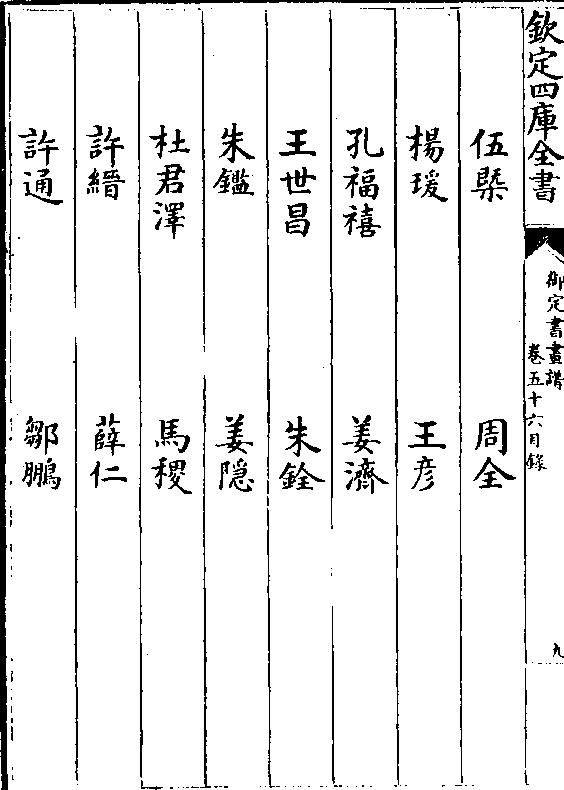 欽定四庫全書
御定書畫譜
卷五十六目録
九
伍槼 周全
楊瑗 王彦
孔福禧 姜濟
王世昌 朱銓
朱鑑 姜隠
杜君澤 馬稷
許縉 薛仁
許通 鄒鵬